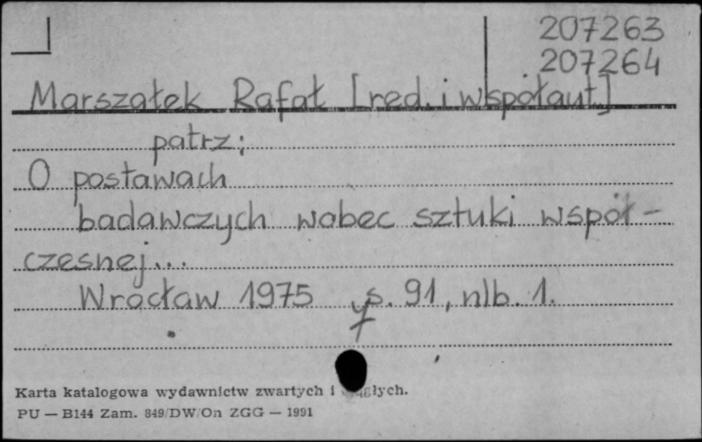 207263
207264
Marszałek Rafał [red. i współaut]
patrz:
O postawach
badawczych wobec sztuki współ-
czesnej...
Wrocław 1975 s. 91, nlb. 1.
Karta katalogowa wydawnictw zwartych i
PU — B144 Zam. 849/DW/On ZGG — 1991